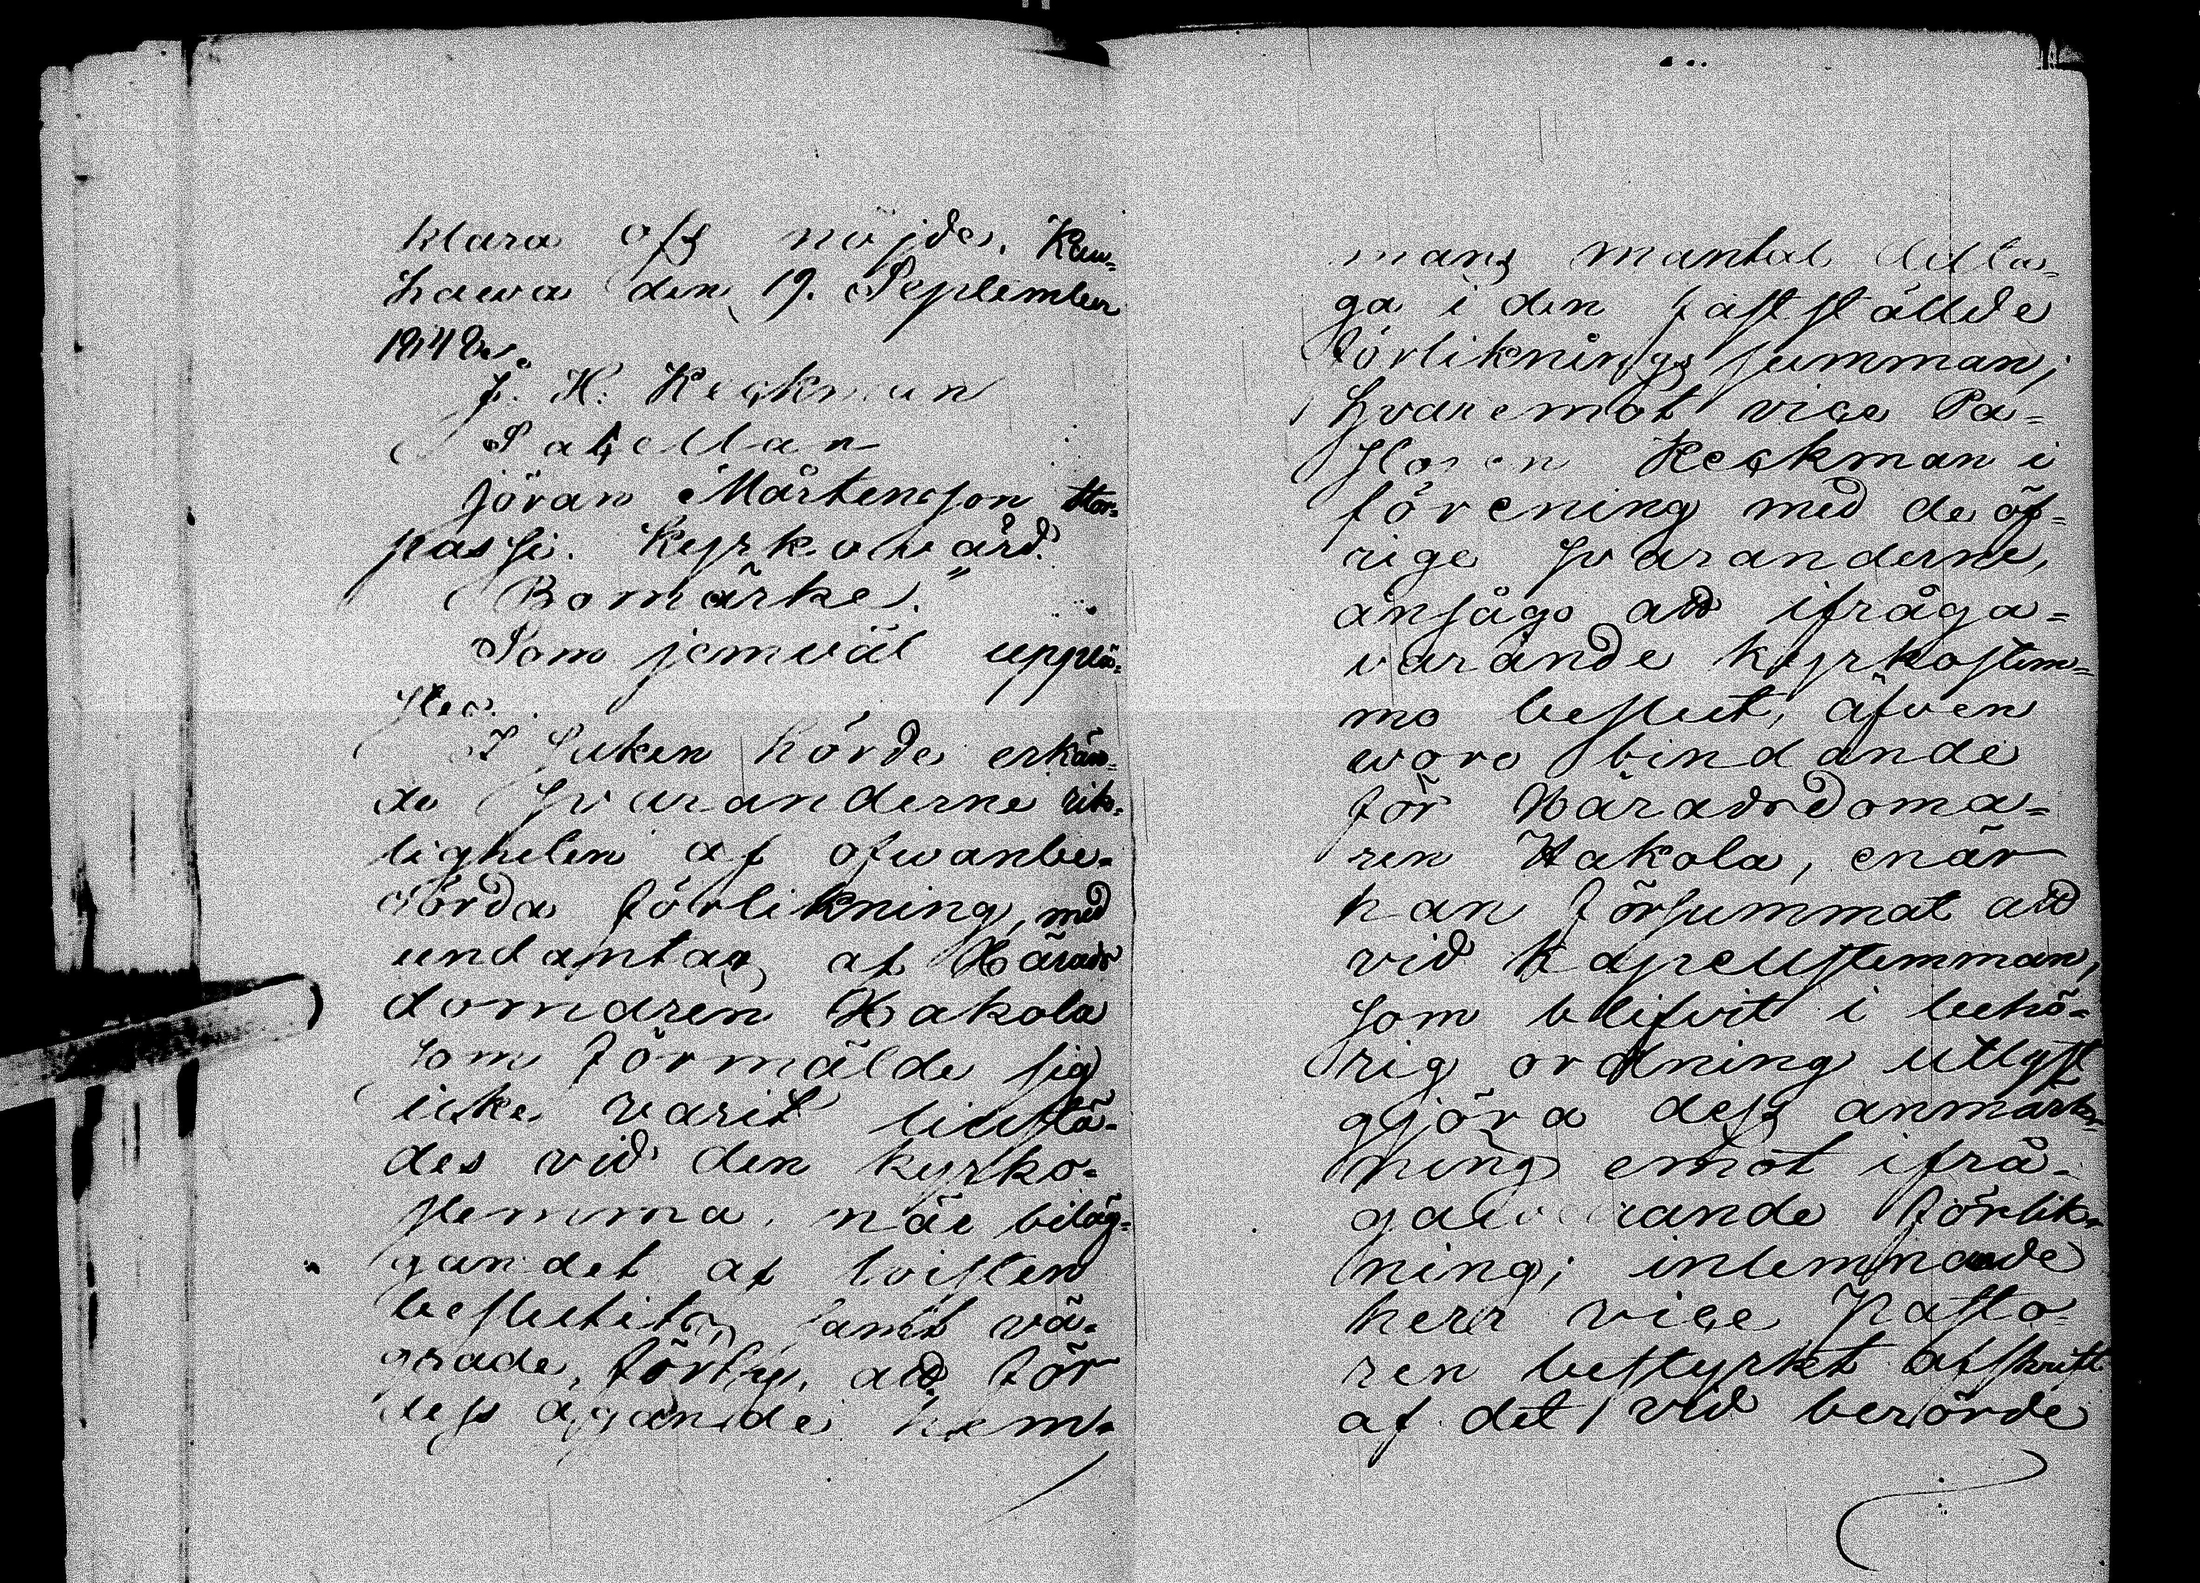 klara oss nöjde. Kau-
hawa den 19. September
1848.
J. H. Keckman
Sacellan
Jöran Mårtensson Kor-
passi. Kyrkovärd.
Bomärke."
Som jemväl upplä-
stes.
I saken hörde erkän-
de Svaranderne rik-
tigheten af ofwanbe-
rörda förlikning, med
undantag af Härads
domaren Hakola
som förmälde sig
icke varit tillstä-
des vid den kyrko-
stemma, när biläg-
gandet af tvisten
beslutits, samt vä-
grade, förty, att för
dess ägande hem-
mans mantal deltа-
ga i den fastställde
förliknings summan;
hvaremot vice Pa-
storen Keckman i
förening med de öf-
rige Svaranderne,
ansågo att ifråga-
varande kyrkostem-
mo beslut, äfven
woro bindande
för Häradsdoma-
ren Hakola, enär
han försummat att
vid kapellstemman,
som blifvit i behö-
rig ordning utlyst
gjöra dess anmärk-
ning emot ifrå-
gavarande förlik-
ning; inlemnade
herr vice Pasto-
ren bestyrkt afskrift
af det vid berörde